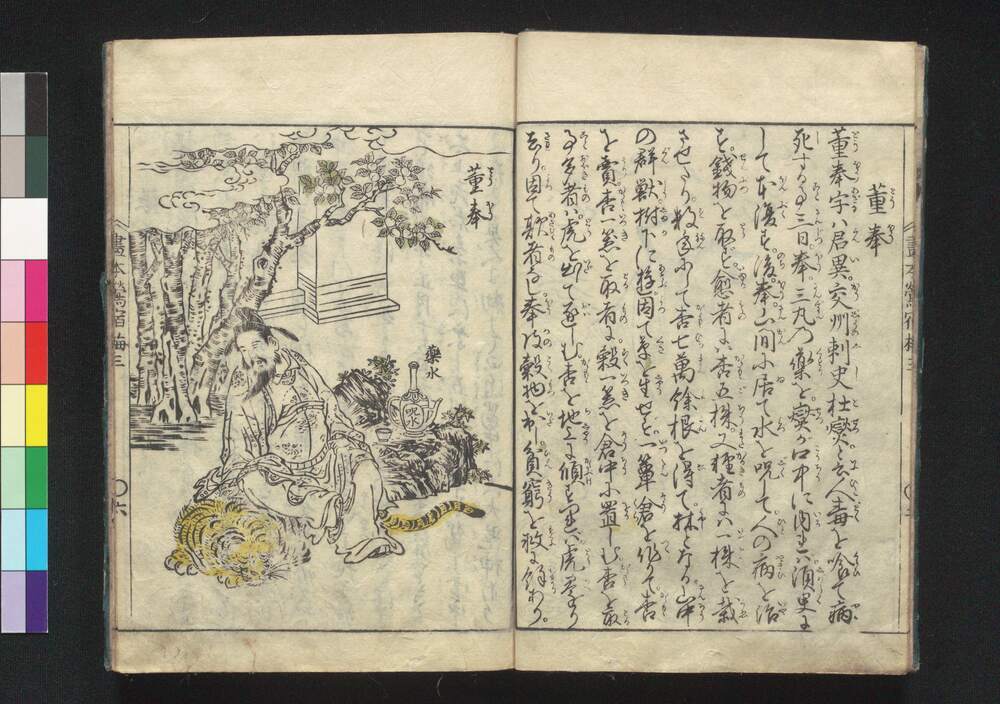 董奉
董奉字ハ君異交州刺史杜燮と云人毒を喰て病
死する事三日奉三丸の薬を燮が口中に内ルに須臾に
して本復す後奉山間に居て水を呪て人の病を治
す銭物を取ず愈者は杏五株又種者ハ一株を栽
させたり数年にして杏七萬餘根を得て林となり山中
の群獣樹下に遊因て草を生せず一箪倉を作りて杏
を賣杏一器を取者に穀一器を倉中に置しむ杏を取
る事多者ハ虎出て逐しむ杏を地に傾ル虎還り
去り因て欺者無し奉此穀物を以貧窮を救ふ餘あり
畫本鶯宿梅三
董奉
薬水
呪水
畫本鶯宿梅三
〇六